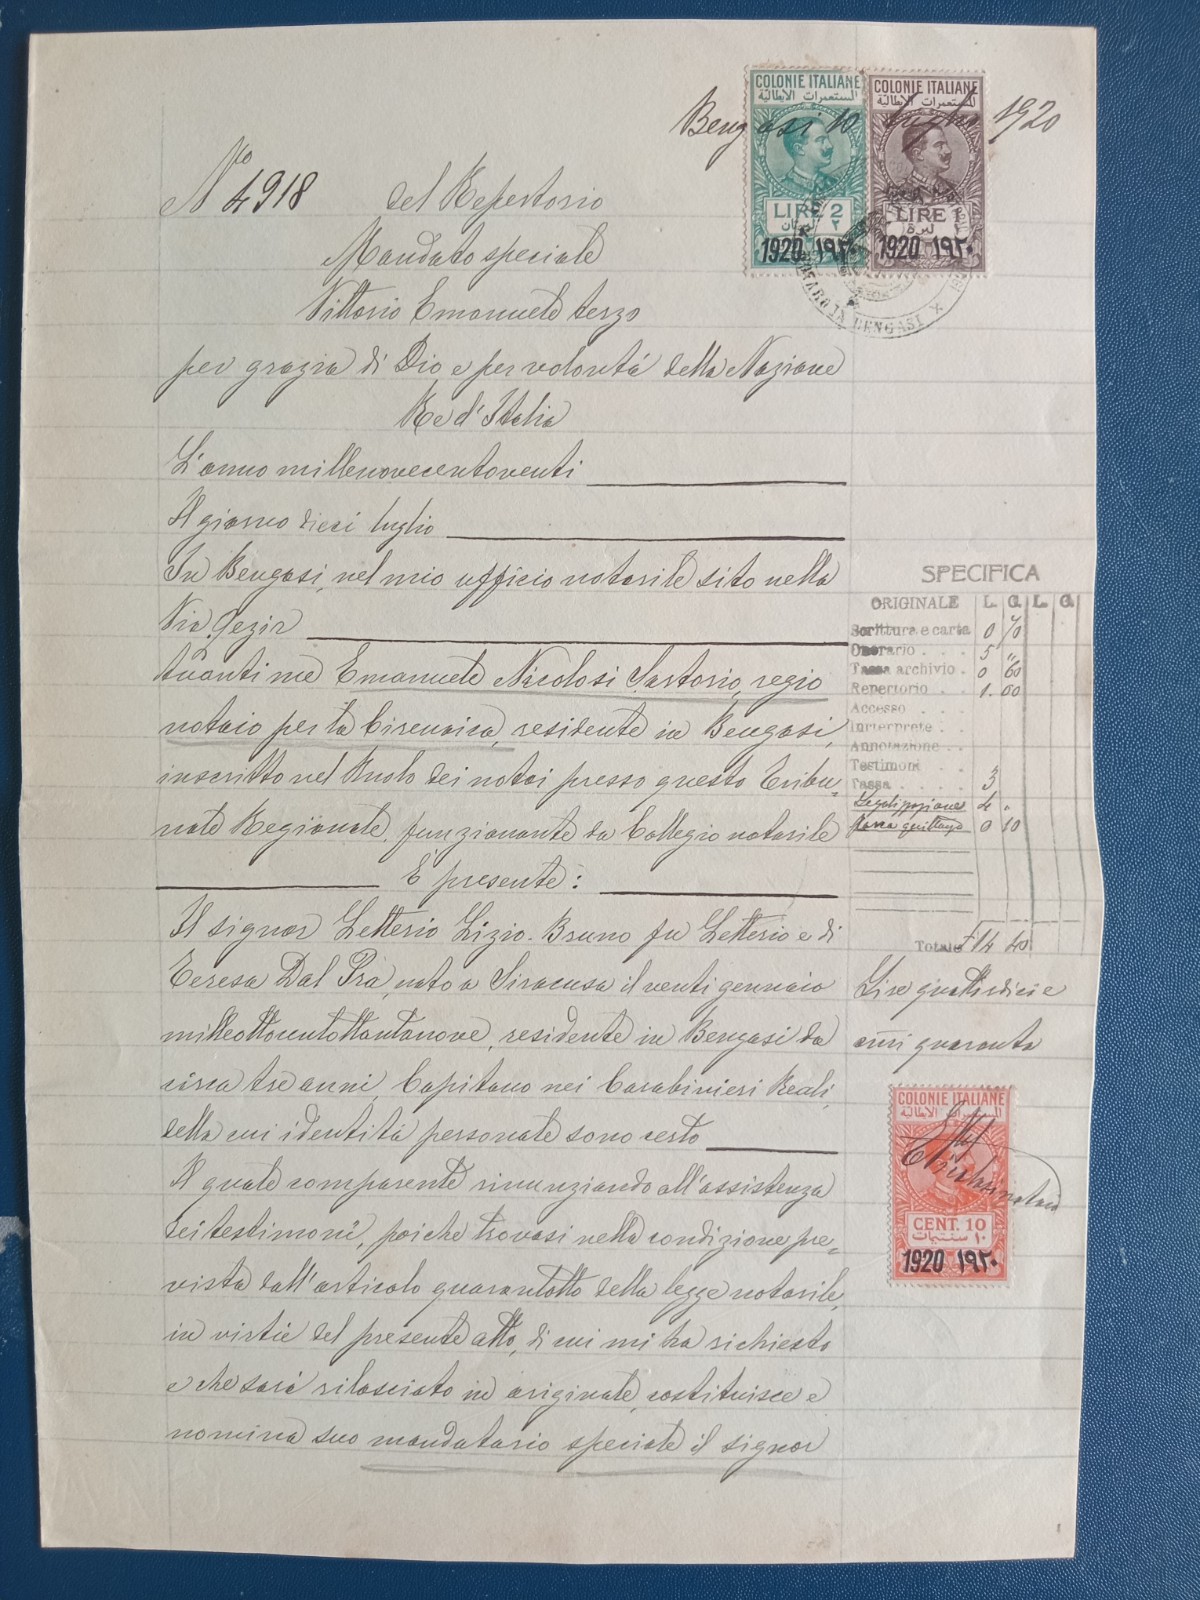 COLONIE ITALIANE
المستعمرات الايطالية
LIRE 2
1920 ١٩٢٠
COLONIE ITALIANE
المستعمرات الايطالية
LIRE 1
ليرة
1920 ١٩٢٠
Bengasi 10 luglio 1920
BENGASI
No 4918 del Repertorio
Mandato speciale
Vittorio Emanuele terzo
per grazia di Dio e per volontà della Nazione
Re d'Italia
L'anno millenovecentoventi
Il giorno dieci luglio
In Bengasi, nel mio ufficio notarile sito nella
Via Gezir
Avanti me Emanuele Nicolosi Sartorio, regio
notaio per la Cirenaica, residente in Bengasi,
inscritto nel Ruolo dei notai presso questo Tribu-
nale Regionale funzionante da Collegio notarile
È presente:
Il signor Letterio Lizio-Bruno fu Letterio e di
Teresa Dal Prà, nato a Siracusa il venti gennaio
milleottocentottantanove, residente in Bengasi da
circa tre anni, Capitano nei Carabinieri Reali,
della cui identità personale sono certo
Il quale comparente rinunziando all'assistenza
dei testimoni, poiche trovasi nella condizione pre-
vista dall'articolo quarantotto della legge notarile,
in virtù del presente atto, di cui mi ha richiesto
e che sarà rilasciato in originale, costituisce e
nomina suo mandatario speciale il signor
SPECIFICA
ORIGINALE L. C. L. C.
Scrittura e carta 0 70
Onorario . . . 5 "
Tassa archivio . 0 60
Repertorio . . 1.00
Accesso . . .
Interprete . .
Annotazione . .
Testimoni . .
Tassa . . . . 3
Legalizzazione 4 "
Marca quittanza 0 10
Totale £ 14 40
Lire quattordici e
cmi quaranta
COLONIE ITALIANE
المستعمرات الايطالية
CENT. 10
١٠ سنتيمات
1920 ١٩٢٠